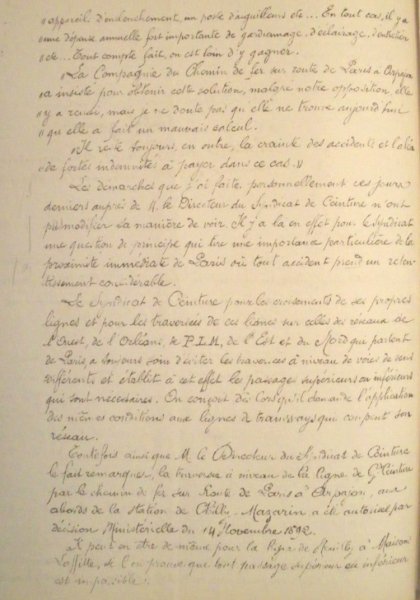 « appareil d'enclenchement, un poste d'aiguilleurs etc... En tout cas, il y a
« une dépense annuelle fort importante de gardiennage, d'éclairage, d'entretien
« etc... Tout compte fait, on est loin d'y gagner.
« La Compagnie du Chemin de fer sur route de Paris à Arpajon
« a insisté pour obtenir cette solution, malgré notre opposition elle
« y a réussi, mais je ne doute pas qu'elle ne trouve aujourd'hui
« qu'elle a fait un mauvais calcul.
« Il reste toujours, en outre, la crainte des accidents et
« de fortes indemnités à payer dans ce cas. »
Les démarches que j'ai faites personnellement ces jours
derniers auprès de M. le Directeur du Syndicat de Ceinture n'ont
pu modifier sa manière de voir. Il y a là en effet pour le Syndicat
une question de principe qui tire une importance particulière de la
proximité immédiate de Paris où tout accident prend un reten-
tissement considérable.
Le Syndicat de Ceinture pour les croisements de ses propres
lignes et pour les traversées de ces lignes sur celles des réseaux de
l'Ouest, de l'Orléans, de P.L.M., de l'Est et du Nord qui partent
de Paris, a toujours soin d'éviter les traversées à niveau de voies de sens
différents et établit à cet effet les passages supérieurs ou inférieurs
qui sont nécessaires. On conçoit dès lors qu'il demande l'application
des mêmes conditions aux lignes de tramways qui coupent son
réseau.
Toutefois ainsi que M. le Directeur du Syndicat de Ceinture
le fait remarquer, la traversée à niveau de la ligne de Gde Ceinture
par le chemin de fer sur Route de Paris à Arpajon, aux
abords de la station de Chilly-Mazarin a été autorisée par
décision Ministérielle du 14 Novembre 1892.
Il peut en être de même pour la ligne de Neuilly à Maisons
Laffitte, si l'on prouve que tout passage supérieur ou inférieur
est impossible.